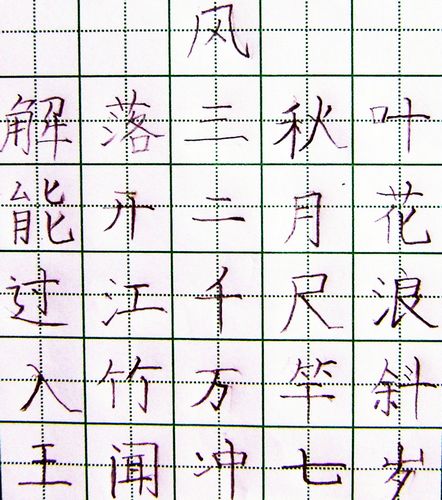 风
解落三秋叶
能开二月花
过江千尺浪
入竹万竿斜
王闻冲七岁